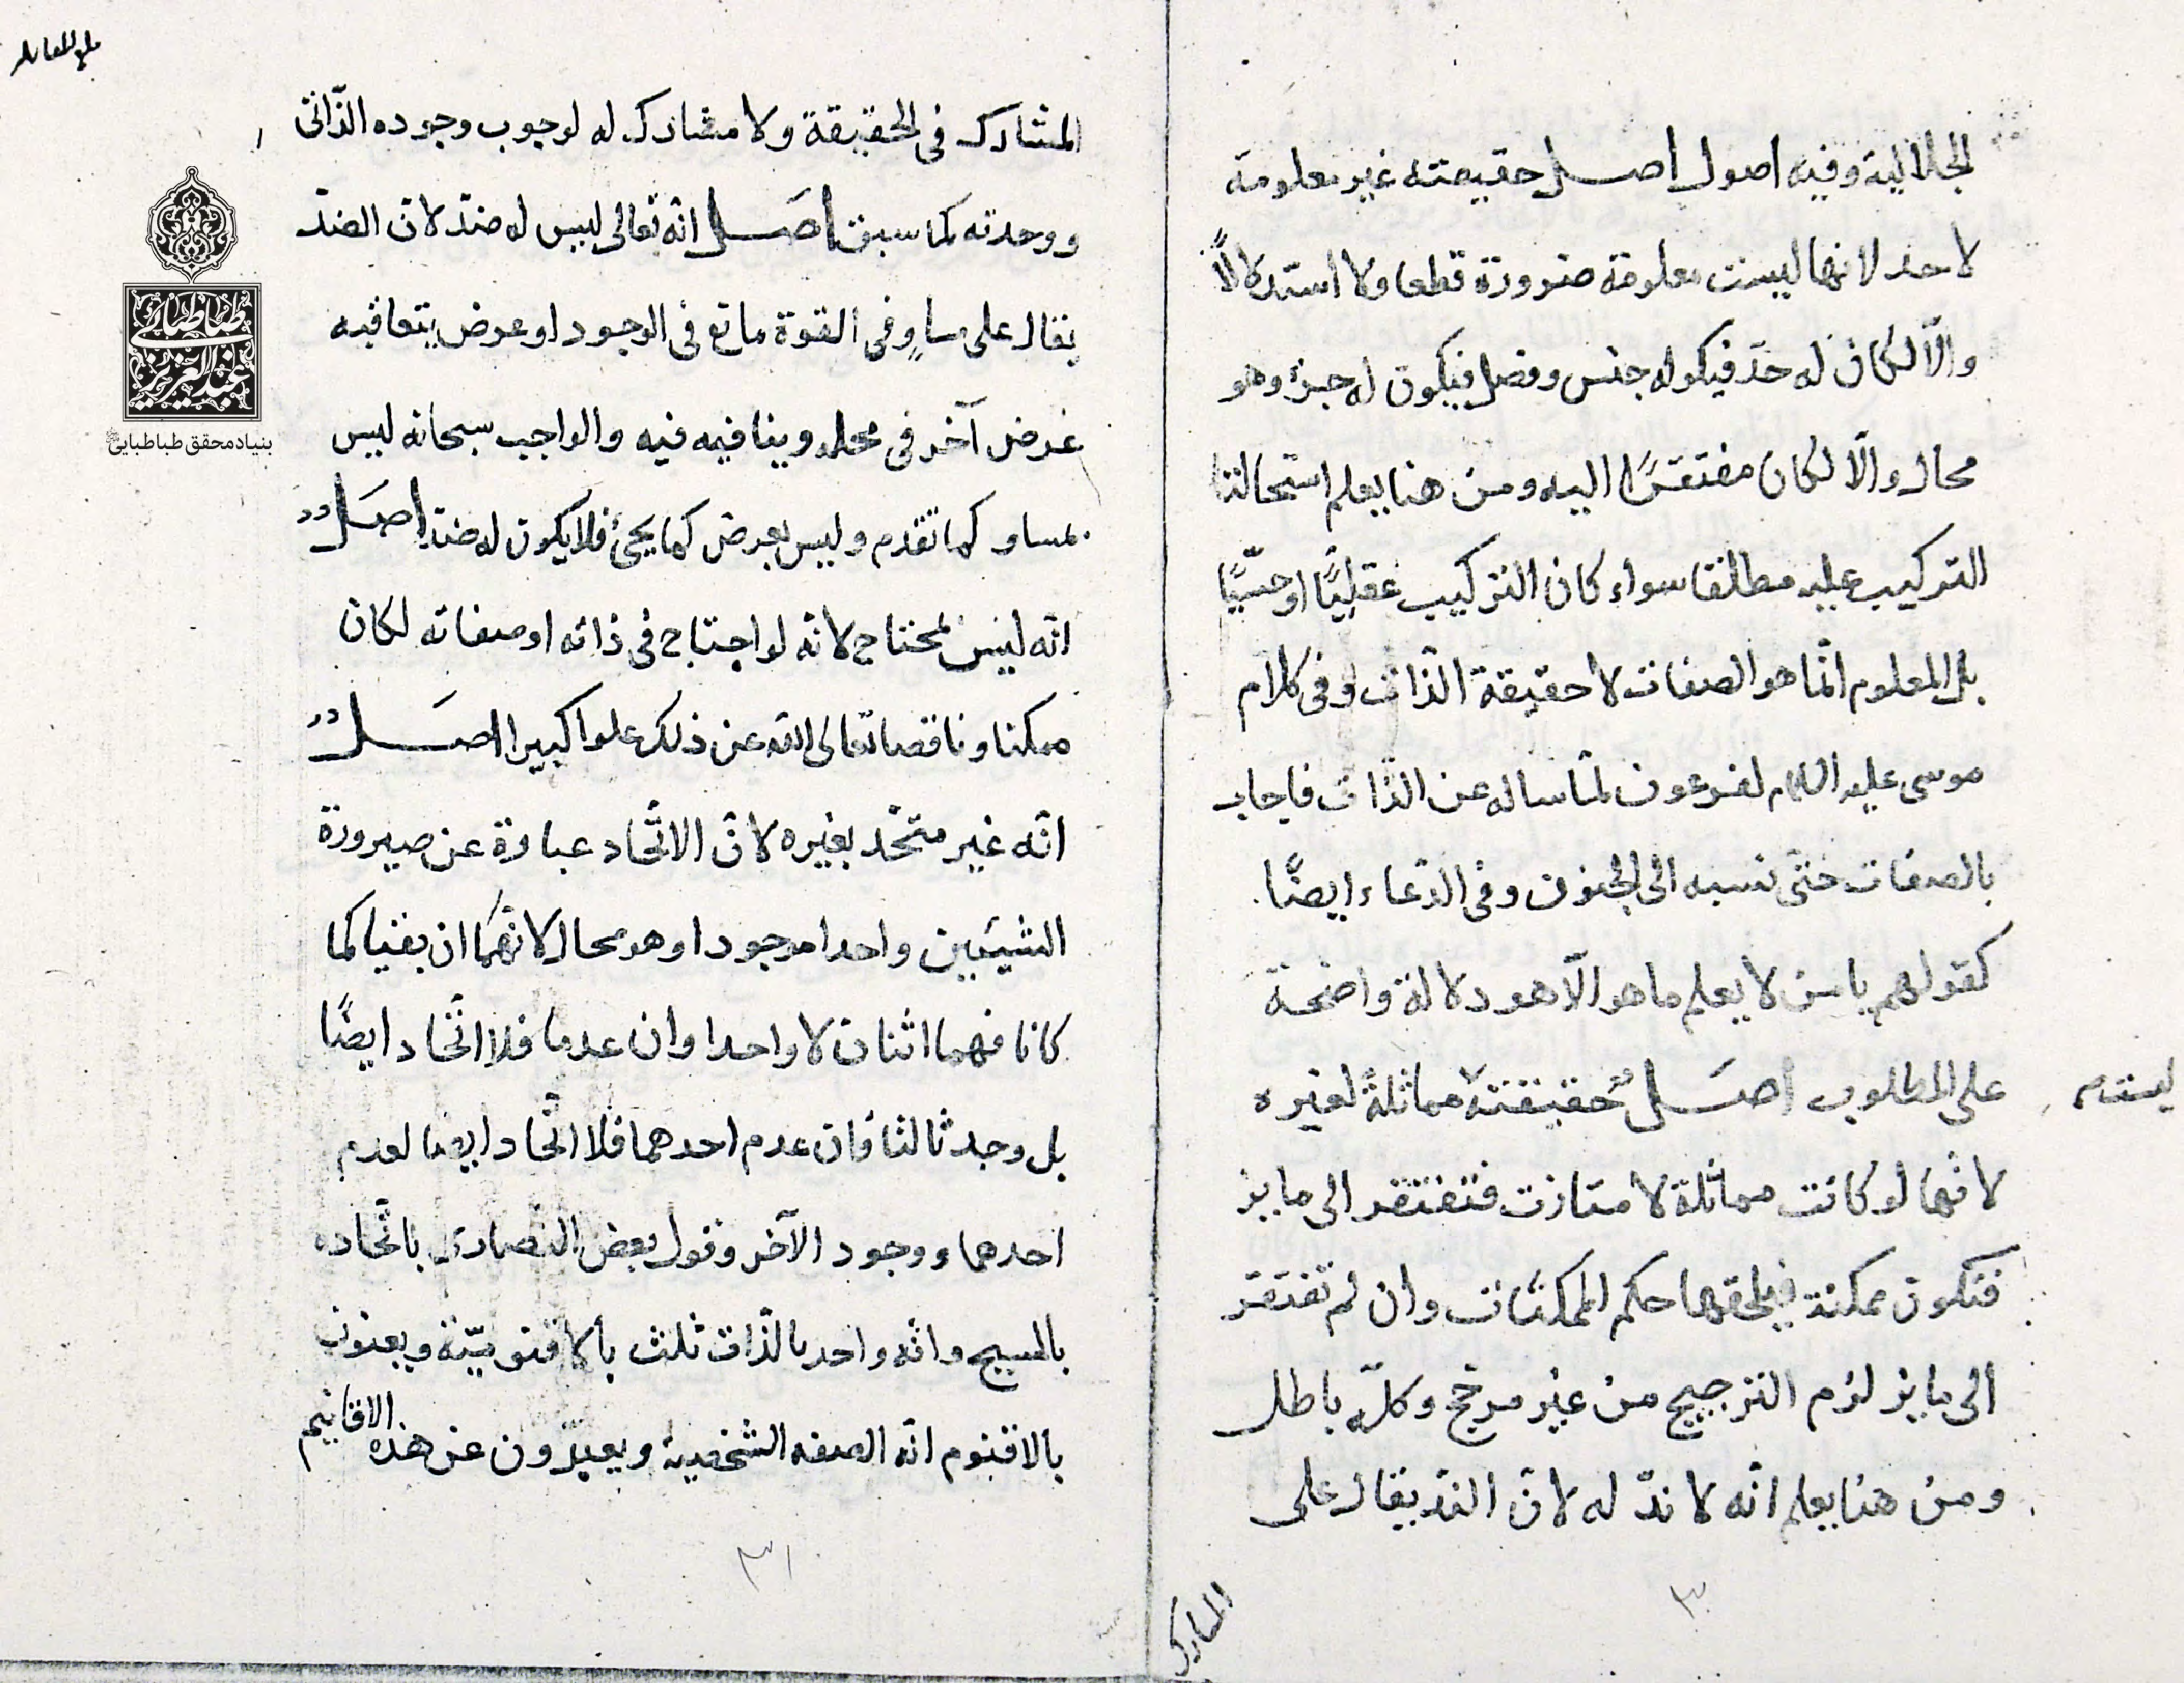 الجلالية وفيه اصول اصل حقيقته غير معلومة
لاحد لانها ليست معلومة ضرورة قطعا ولا استدلالاً
والّا لكان له حدّ فيكو له جنس وفصل فيكون له جزء وهو
محال والّا لكان مفتقرًا اليه ومن هنا يعلم استحالتا
التركيب عليه مطلقا سواء كان التركيب عقليًّا او حسّيًّا
بل المعلوم انّما هو الصفات لا حقيقة الذّات وفى كلام
موسى عليه السلام لفرعون لمّا ساله عن الذّات فاجاب
بالصفات حتّى نسبه الى الجنون وفى الدّعاء ايضًا
كقولهم يا من لا يعلم ما هو الّا هو دلالة واضحة
على المطلوب اصل حقيقته مماثلةً لغيره
ليست
لانّها لو كانت مماثلة لامتازت فتفتقر الى مايز
فتكون ممكنة فيلحقها حكم الممكنات وان لم تفتقر
الى مايز لزم الترجيح من غير مرجّح وكلّه باطل
ومن هنا يعلم انّه لا ندّ له لانّ الندّ يقال على
المشارك
٣٠
المشارك فى الحقيقة ولا مشارك له لوجوب وجوده الذّاتى
ووحدته كما سبق اصل انّه تعالى ليس له ضدّ لانّ الضدّ
يقال على مساوٍ فى القوة مانع فى الوجود او عرض يتعاقبه
عرض آخر فى محله وينافيه فيه والواجب سبحانه ليس
بمساو كما تقدم وليس بعرض كما يجئ فلا يكون له ضدّ اصل
انّه ليس بمحتاج لانّه لو احتاج فى ذاته او صفاته لكان
ممكنا وناقصا تعالى الله عن ذلك علوا كبيرا اصل
انّه غير متحّد بغيره لانّ الاتّحاد عبارة عن صيرورة
الشيئين واحدا موجودا وهو محال لانّهما ان بقيا كما
كانا فهما اثنان لا واحدا وان عدما فلا اتّحاد ايضًا
بل وجد ثالثا فان عدم احدهما فلا اتّحاد ايضا لعدم
احدهما ووجود الآخر وقول بعض النّصارى باتّحاده
بالمسيح وانّه واحد بالذّات ثلث بألاقنوميّة ويعنون
بالاقنوم انّه الصفه الشخصية ويعبّرون عن هذه الاقانيم
٣١
طباطبائى
عبدالعزيز
بنیاد محقق طباطبایی